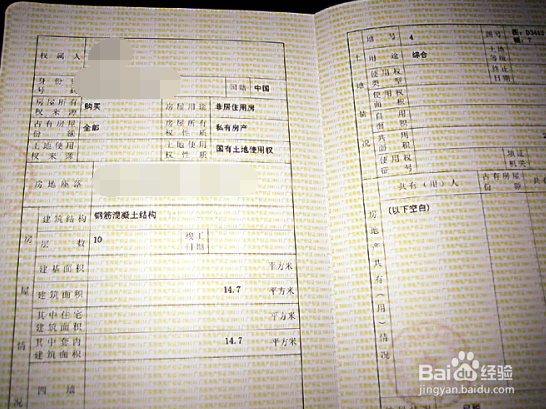 权属人
身份
国籍 中国
房屋所有权来源 购买 房屋用途 非居住用房
占有房屋份额 全部 房屋所有权性质 私有房产
土地使用权来源 土地使用权性质 国有土地使用权
房地座落
建筑结构 钢筋混凝土结构
层数 10 竣工日期
建基面积 平方米
建筑面积 14.7 平方米
其中住宅建筑面积 平方米
其中套内建筑面积 14.7 平方米
四墙
房屋情况
地号 4 图号
用途 综合
土地情况
共有(用)人 占有房屋份额
(以下空白)
房地产共有(用)情况
Bai du 经验
jingyan.baidu.com